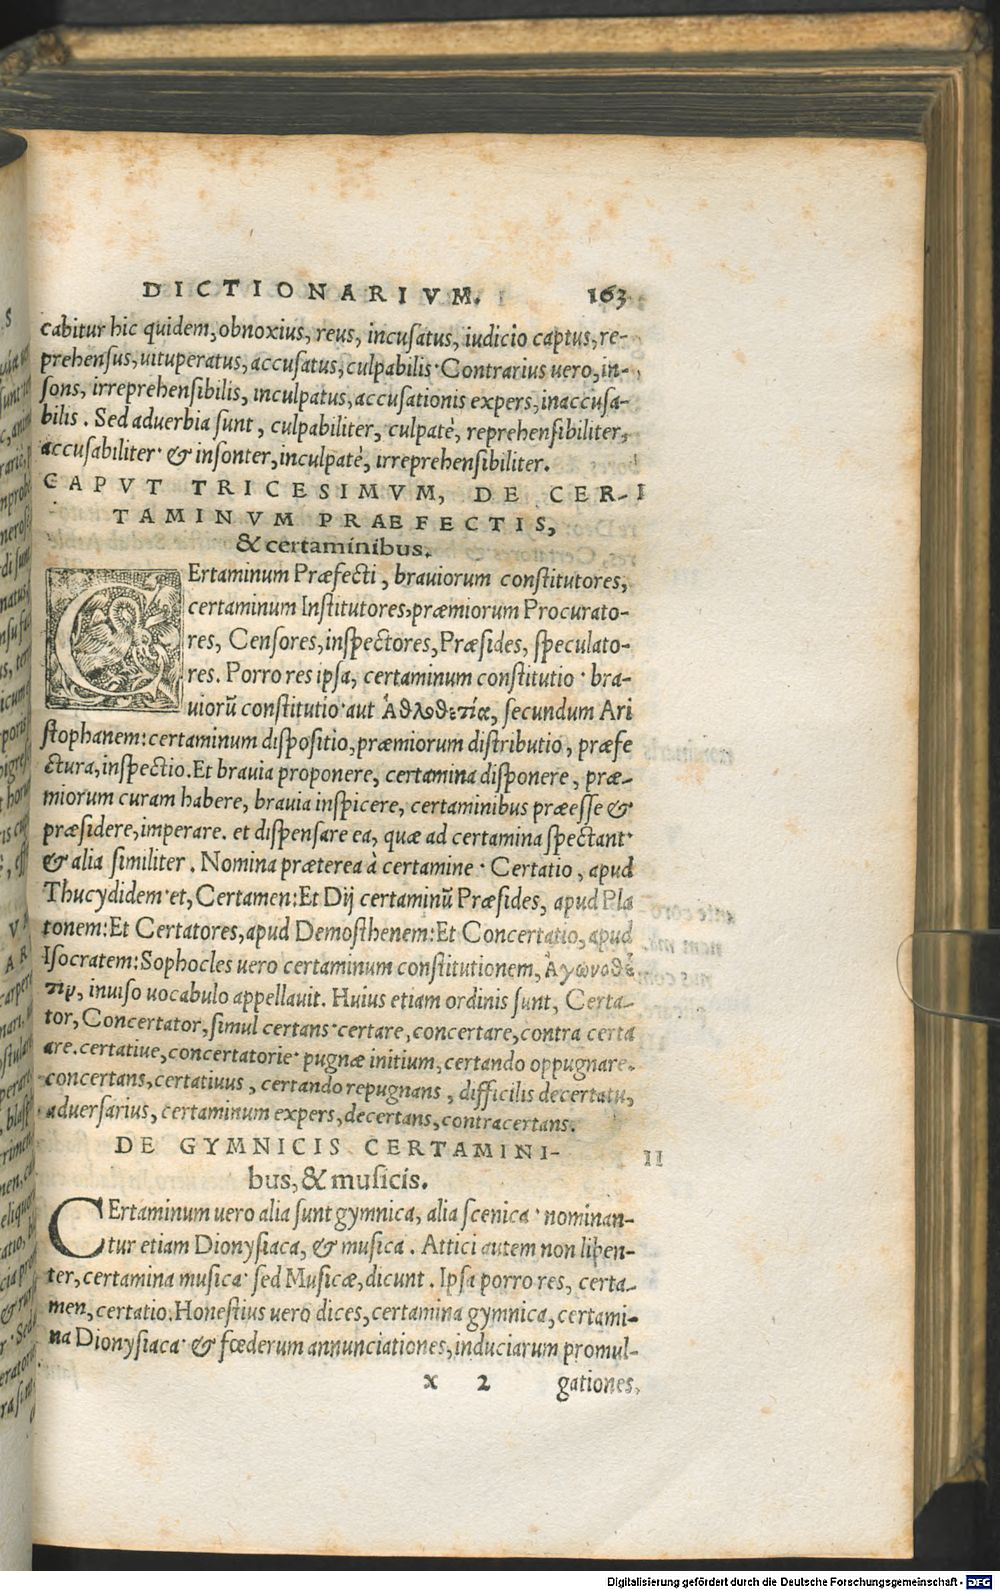 DICTIONARIVM. 163
cabitur hic quidem, obnoxius, reus, incusatus, iudicio captus, re-
prehensus, uituperatus, accusatus, culpabilis· Contrarius uero, in-
sons, irreprehensibilis, inculpatus, accusationis expers, inaccusa-
bilis. Sed aduerbia sunt, culpabiliter, culpatè, reprehensibiliter,
accusabiliter· & insonter, inculpatè, irreprehensibiliter.
CAPVT TRICESIMVM, DE CER- I
TAMINVM PRAEFECTIS,
& certaminibus.
CErtaminum Præfecti, brauiorum constitutores,
certaminum Institutores, præmiorum Procurato-
res, Censores, inspectores, Præsides, speculato-
res. Porro res ipsa, certaminum constitutio· bra-
uiorũ constitutio· aut Ἀθλοθετία, secundum Ari
stophanem: certaminum dispositio, præmiorum distributio, præfe
ctura, inspectio. Et brauia proponere, certamina disponere, præ-
miorum curam habere, brauia inspicere, certaminibus præesse &
præsidere, imperare. et dispensare ea, quæ ad certamina spectant·
& alia similiter. Nomina præterea à certamine· Certatio, apud
Thucydidem· et, Certamen: Et Dij certaminũ Præsides, apud Pla
tonem: Et Certatores, apud Demosthenem: Et Concertatio, apud
Isocratem: Sophocles uero certaminum constitutionem, Ἀγωνοθέ
την, inuiso uocabulo appellauit. Huius etiam ordinis sunt, Certa-
tor, Concertator, simul certans· certare, concertare, contra certa
are. certatiue, concertatorie· pugnæ initium, certando oppugnare.
concertans, certatiuus, certando repugnans, difficilis decertatu,
aduersarius, certaminum expers, decertans, contracertans.
DE GYMNICIS CERTAMINI- II
bus, & musicis.
CErtaminum uero alia sunt gymnica, alia scenica· nominan-
tur etiam Dionysiaca, & musica. Attici autem non liben-
ter, certamina musica· sed Musicæ, dicunt. Ipsa porro res, certa-
men, certatio. Honestius uero dices, certamina gymnica, certami-
na Dionysiaca· & fœderum annunciationes, induciarum promul-
x 2 gationes,
Digitalisierung gefördert durch die Deutsche Forschungsgemeinschaft - DFG